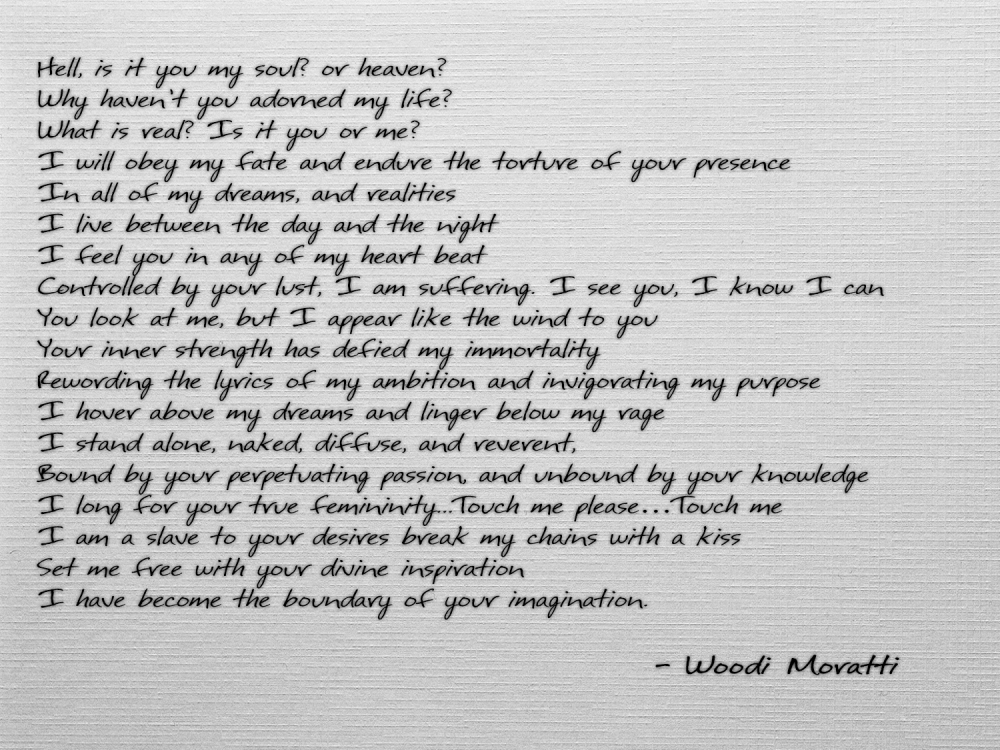 Hell, is it you my soul? or heaven?
Why haven't you adorned my life?
What is real? Is it you or me?
I will obey my fate and endure the torture of your presence
In all of my dreams, and realities
I live between the day and the night
I feel you in any of my heart beat
Controlled by your lust, I am suffering. I see you, I know I can
You look at me, but I appear like the wind to you
Your inner strength has defied my immortality
Rewording the lyrics of my ambition and invigorating my purpose
I hover above my dreams and linger below my rage
I stand alone, naked, diffuse, and reverent,
Bound by your perpetuating passion, and unbound by your knowledge
I long for your true femininity...Touch me please...Touch me
I am a slave to your desires break my chains with a kiss
Set me free with your divine inspiration
I have become the boundary of your imagination.
- Woodi Moratti